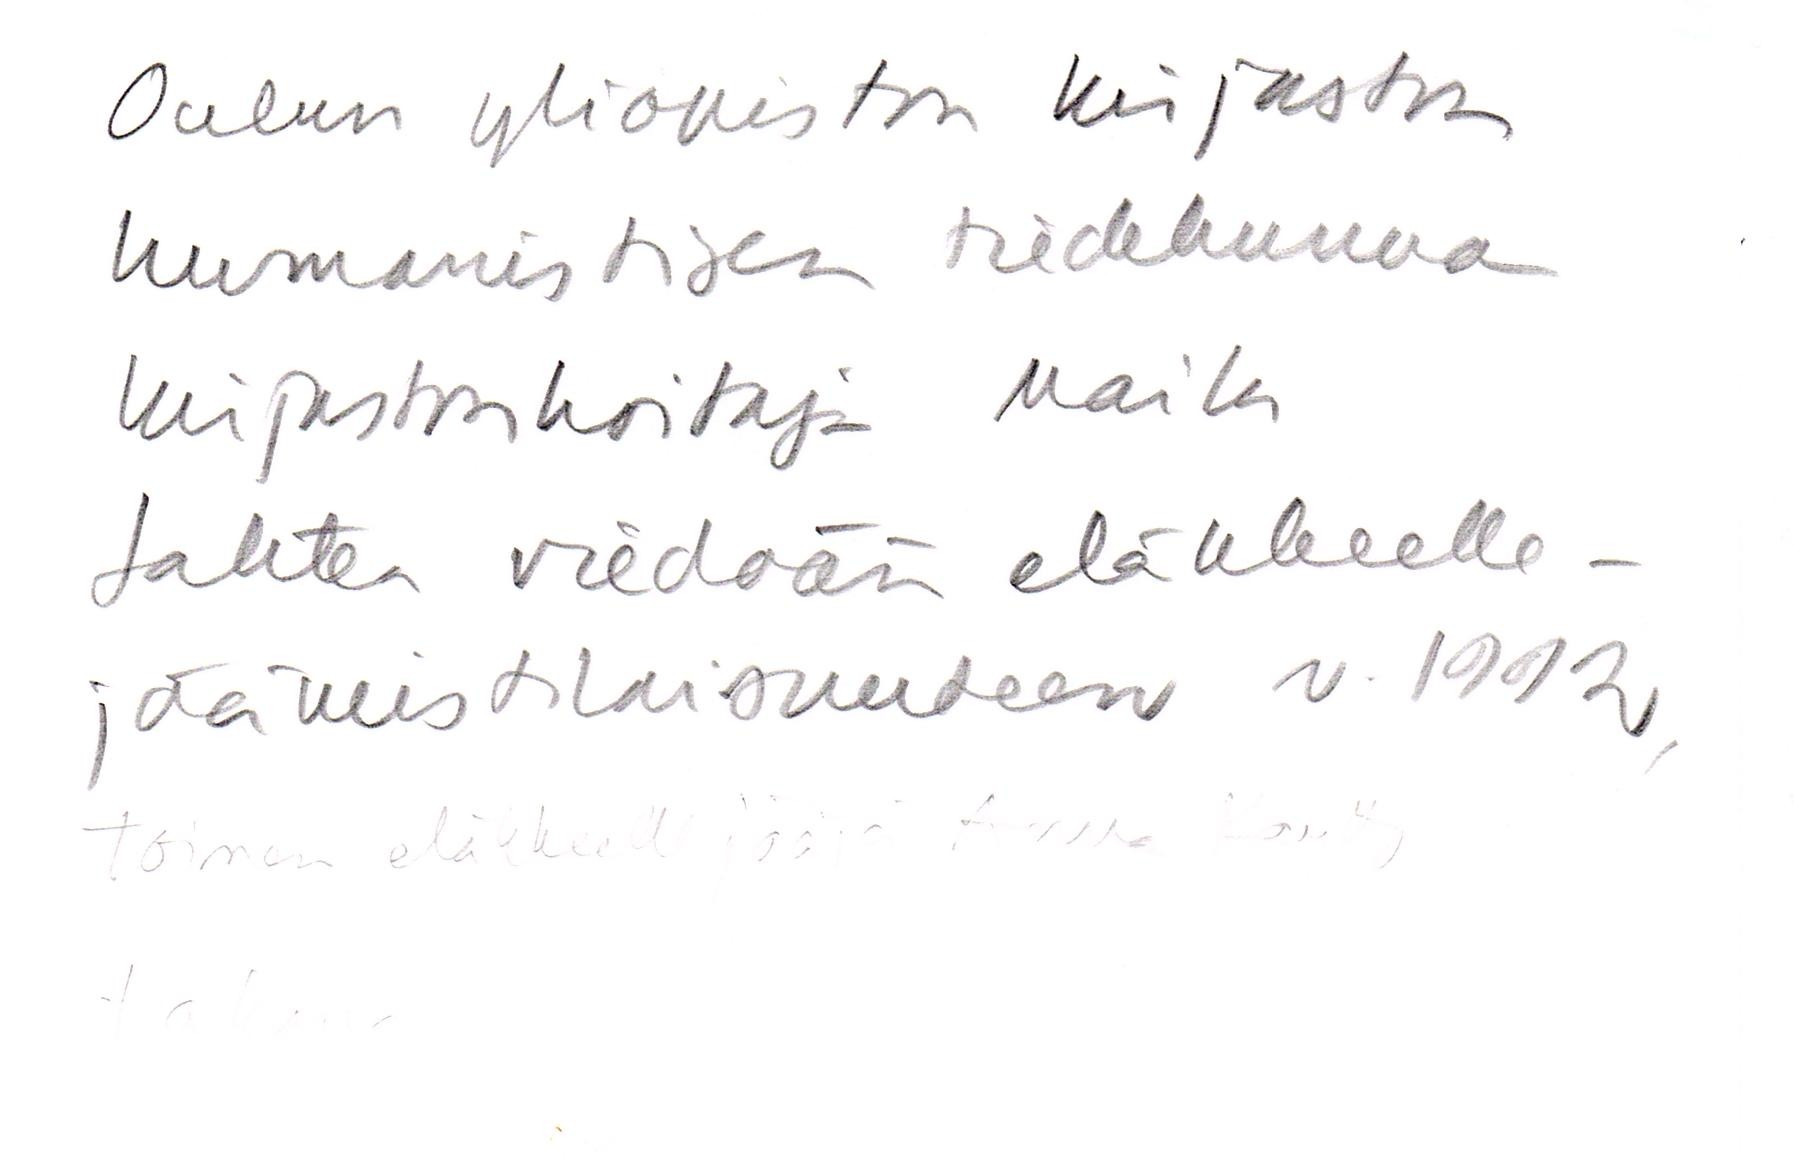 Oulun yliopiston kirjaston
humanistisen tiedekunna
kirjastonhoitaja Maik
Lahtea viedään eläkkeelle-
jäämistilaisuuteen v. 1992,
toinen eläkkeelle jääjä
takana